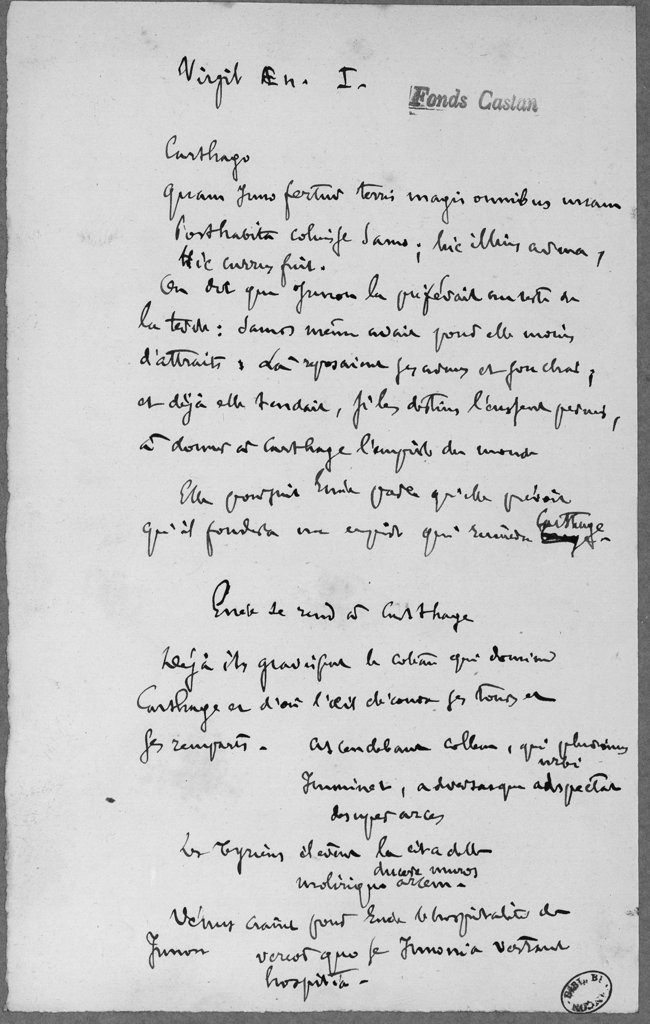 Virgil Æn. I.
Fonds Castan
Carthago
Quam Juno fertur terris magis omnibus unam
Posthabita coluisse Samo ; hic illius arma,
Hic currus fuit.
On dit que Junon la préférait au reste de
la terre : Samos même avait pour elle moins
d'attraits ; Là reposaient ses armes et son char ;
et déjà elle tendait, si les destins l'eussent permis,
à donner à Carthage l'empire du monde
Elle poursuit Enée parce qu'elle prévoit
qu'il fondera un empire qui ruinera Carthage.
Enée se rend à Carthage
Déjà ils gravissent la colline qui domine
Carthage et d'où l'œil découvre ses tours et
ses remparts. Ascendebant collem, qui plurimus
urbi
Imminet, adversasque adspectat
desuper arces
Les Tyriens élèvent la citadelle
ducere muros
molirique arcem.
Vénus craint pour Enée l'hospitalité de
Junon vereor quo se Junonia vertant
hospitia.